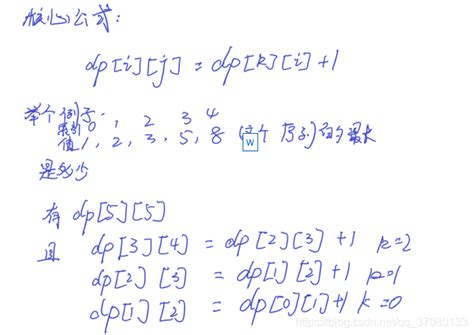 核心公式:
dp[i][j] = dp[k][i]+1
举个例子.
索引 0, 1 2 3 4
值 1, 2, 3, 5, 8 (这个序列)的最大
W
是多少
有 dp[5][5]
且 dp[3][4] = dp[2][3] +1 k=2
dp[2][3] = dp[1][2]+1 k=1
dp[1][2] = dp[0][1]+1 k=0
https://blog.csdn.net/qq_37080133